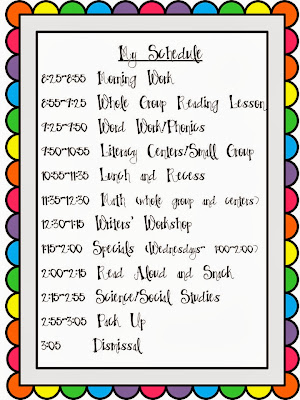 My Schedule
8:25-8:55 Morning Work
8:55-9:25 Whole Group Reading Lesson
9:25-9:50 Word Work/Phonics
9:50-10:55 Literacy Centers/Small Group
10:55-11:35 Lunch and Recess
11:35-12:30 Math (whole group and centers)
12:30-1:15 Writers' Workshop
1:15-2:00 Specials (Wednesdays- 1:00-2:00)
2:00-2:15 Read Aloud and Snack
2:15-2:55 Science/Social Studies
2:55-3:05 Pack Up
3:05 Dismissal